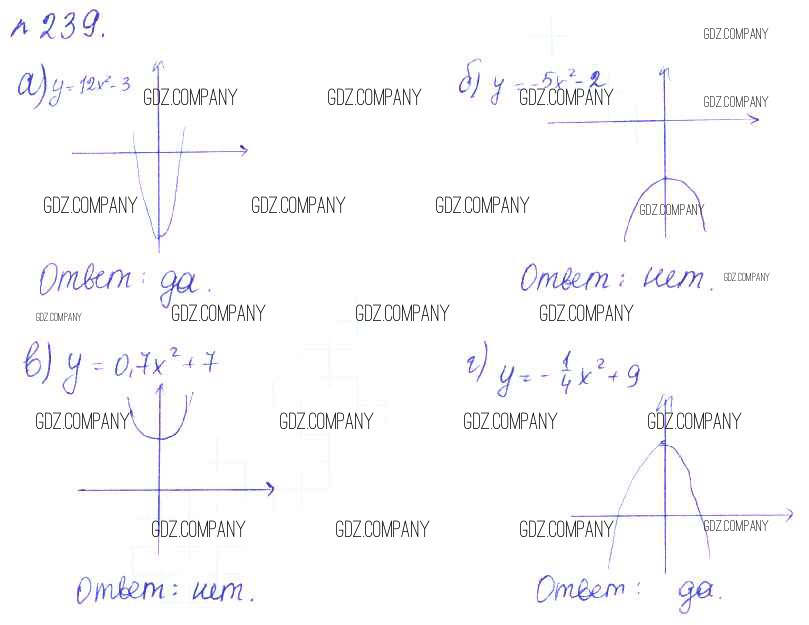 n 239.
GDZ.COMPANY
а) y = 12x² - 3
б) y = -5x² - 2
GDZ.COMPANY GDZ.COMPANY GDZ.COMPANY GDZ.COMPANY
GDZ.COMPANY GDZ.COMPANY GDZ.COMPANY GDZ.COMPANY
Ответ: да.
Ответ: нет.
GDZ.COMPANY
GDZ.COMPANY GDZ.COMPANY GDZ.COMPANY GDZ.COMPANY
в) y = 0,7x² + 7
г) y = -1/4 x² + 9
GDZ.COMPANY GDZ.COMPANY GDZ.COMPANY GDZ.COMPANY
GDZ.COMPANY GDZ.COMPANY GDZ.COMPANY GDZ.COMPANY
Ответ: нет.
Ответ: да.